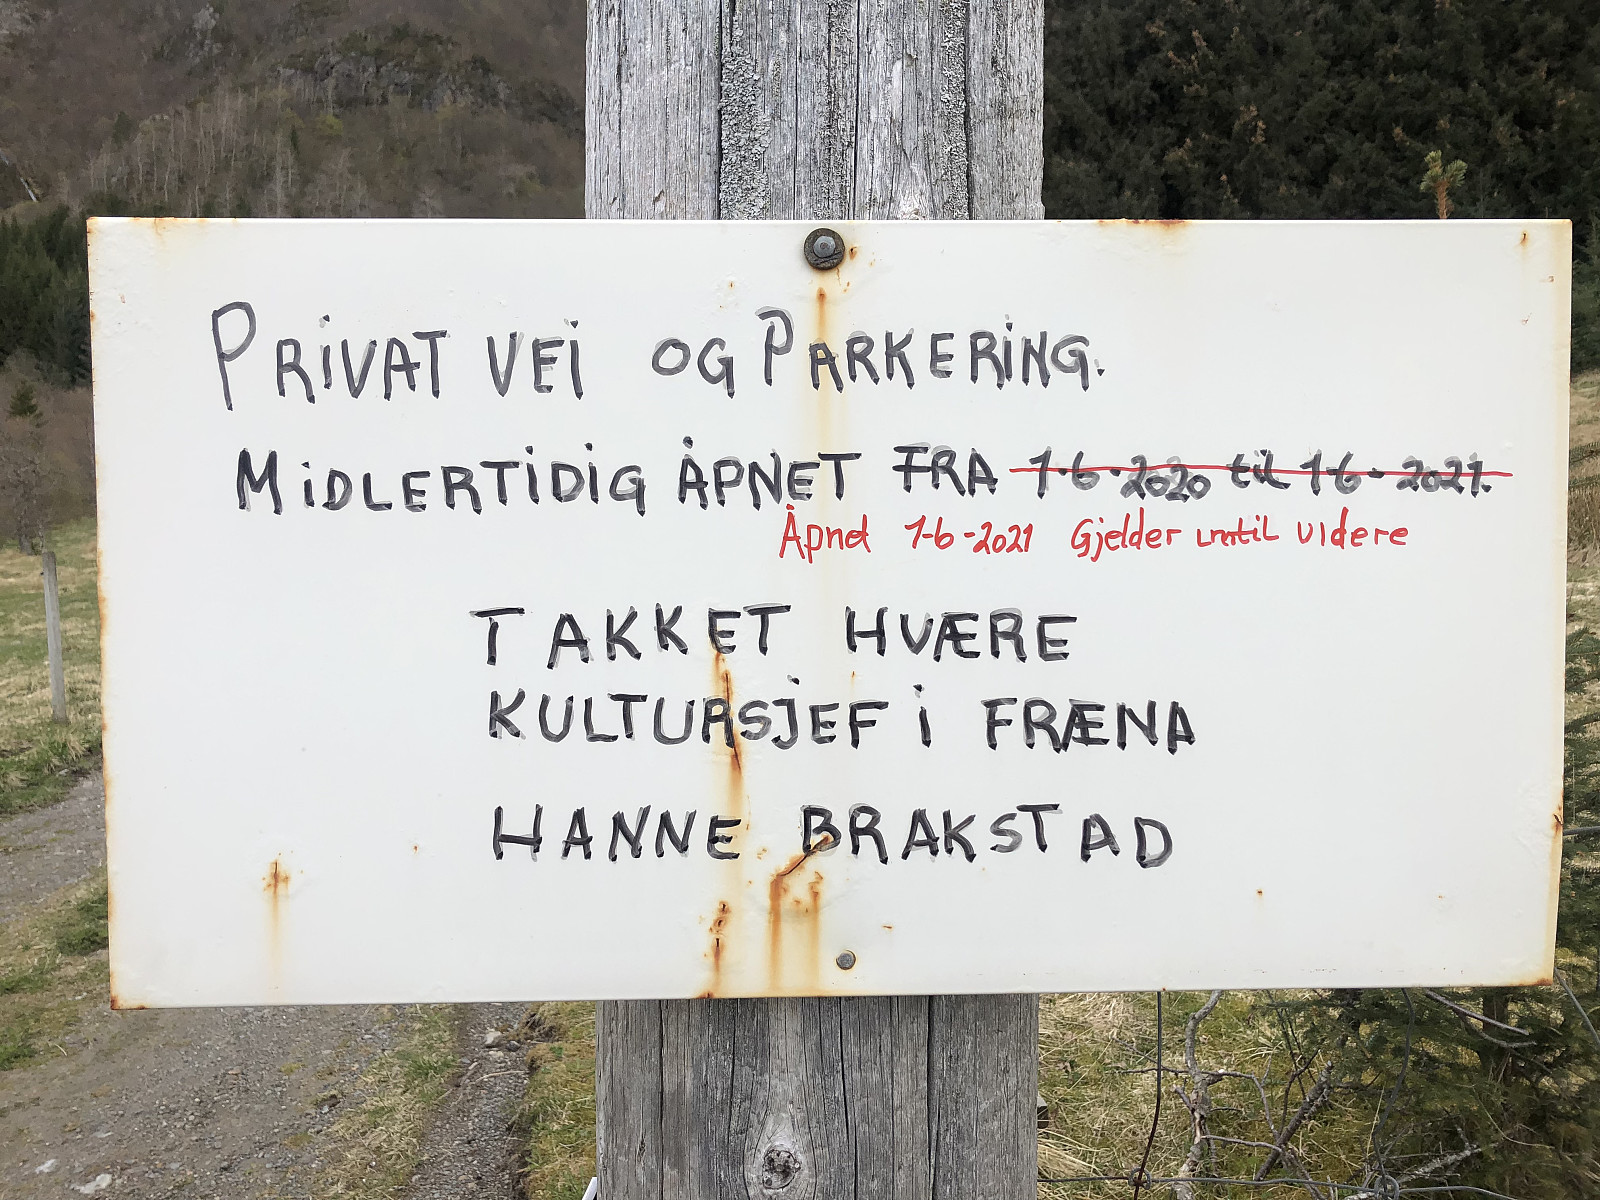 PRiVAT VEi OG PARKERiNG.
MiDLERTiDiG ÅPNET FRA 1-6-2020 til 1-6-2021.
Åpnet 1-6-2021 Gjelder inntil videre
TAKKET HVÆRE
KULTURSJEF i FRÆNA
HANNE BRAKSTAD